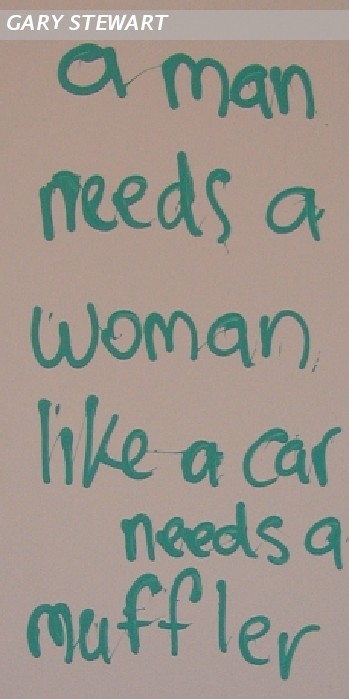 GARY STEWART
a man
needs a
woman,
like a car
needs a
muffler